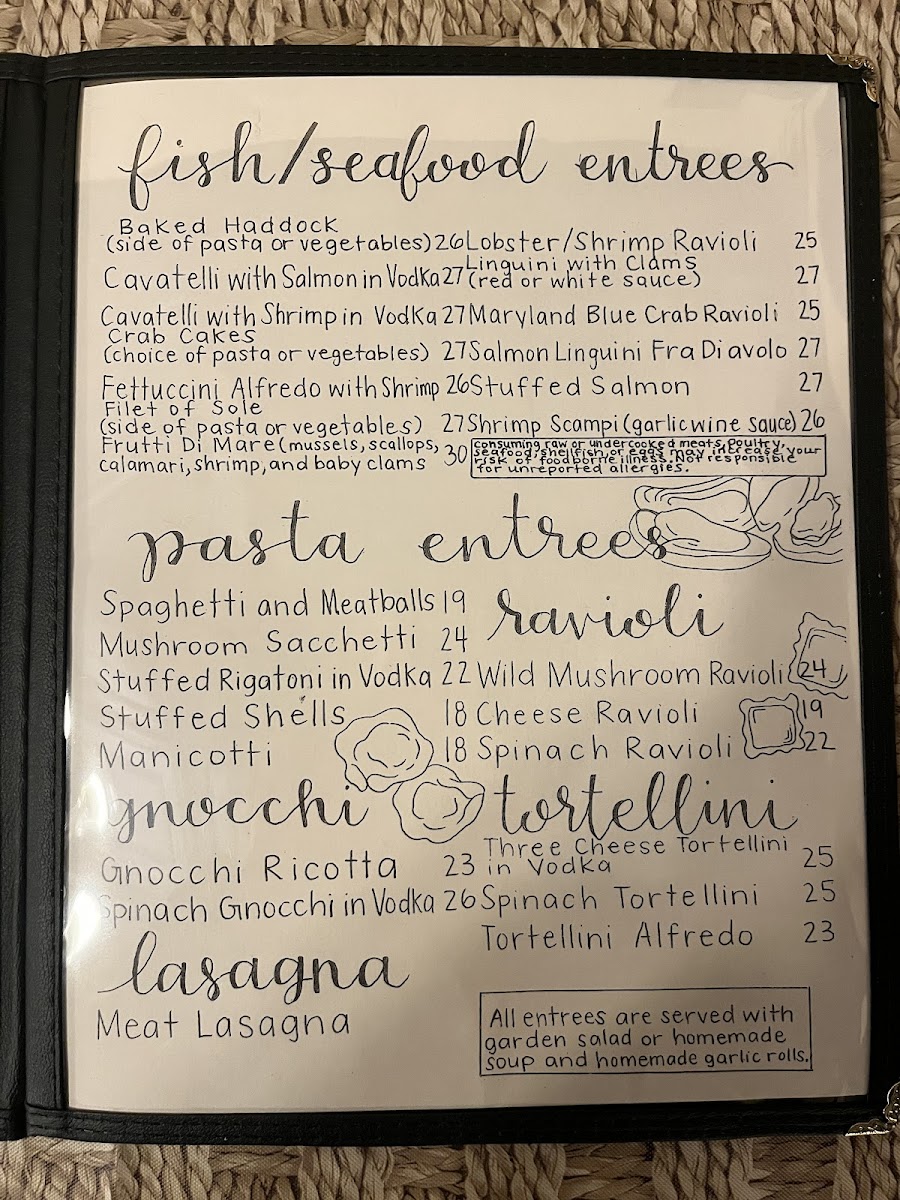 fish/seafood entrees
Baked Haddock
(side of pasta or vegetables) 26
Cavatelli with Salmon in Vodka 27
Cavatelli with Shrimp in Vodka 27
Crab Cakes
(choice of pasta or vegetables) 27
Fettuccini Alfredo with Shrimp 26
Filet of Sole
(side of pasta or vegetables) 27
Frutti Di Mare (mussels, scallops,
calamari, shrimp, and baby clams 30
Lobster/Shrimp Ravioli 25
Linguini with Clams
(red or white sauce) 27
Maryland Blue Crab Ravioli 25
Salmon Linguini Fra Diavolo 27
Stuffed Salmon 27
Shrimp Scampi (garlic wine sauce) 26
consuming raw or undercooked meats, poultry,
seafood, shellfish, or eggs may increase your
risk of foodborne illness. Not responsible
for unreported allergies.
pasta entrees
Spaghetti and Meatballs 19
Mushroom Sacchetti 24
Stuffed Rigatoni in Vodka 22
Stuffed Shells 18
Manicotti 18
ravioli
Wild Mushroom Ravioli 24
Cheese Ravioli 19
Spinach Ravioli 22
gnocchi
Gnocchi Ricotta 23
Spinach Gnocchi in Vodka 26
tortellini
Three Cheese Tortellini
in Vodka 25
Spinach Tortellini 25
Tortellini Alfredo 23
lasagna
Meat Lasagna
All entrees are served with
garden salad or homemade
soup and homemade garlic rolls.